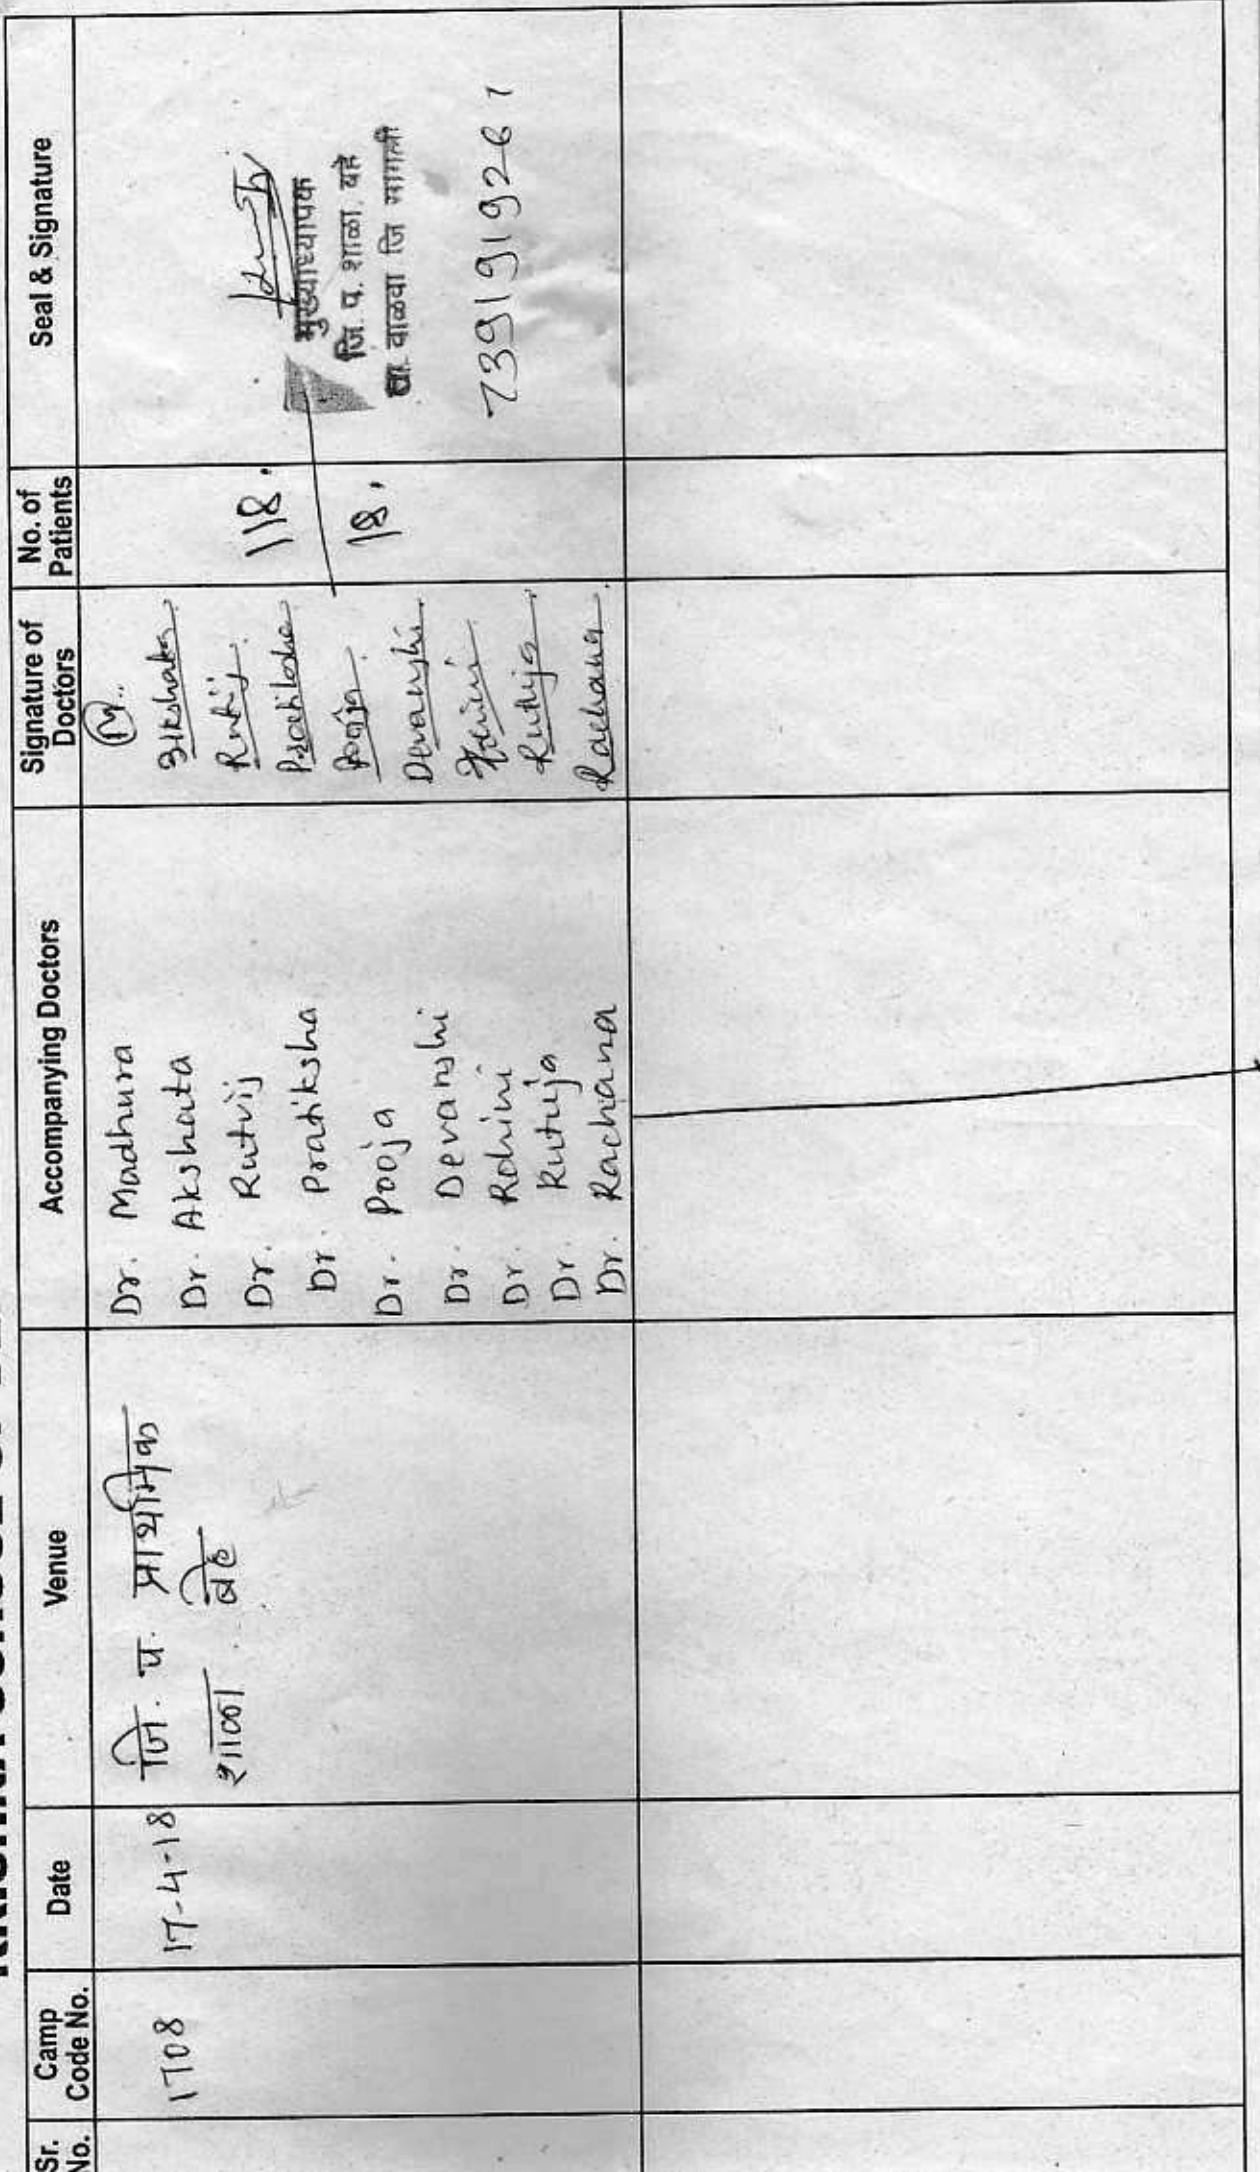 Sr. No.
Camp Code No.
Date
Venue
Accompanying Doctors
Signature of Doctors
No. of Patients
Seal & Signature
1708
17-4-18
जि. प. प्राथमिक
शाळा. बोरे
Dr. Madhura
Dr. Akshata
Dr. Rutvij
Dr. Pratiksha
Dr. Pooja
Dr. Devanshi
Dr. Rohini
Dr. Rutuja
Dr. Rachana
M..
Akshata
Rutvij
Pratiksha
Pooja
Devanshi
Rutuja
Rachana
118.
18.
मुख्याध्यापक
जि. प. शाळा. बोरे
ता. वाळवा जि सांगली
7391919261